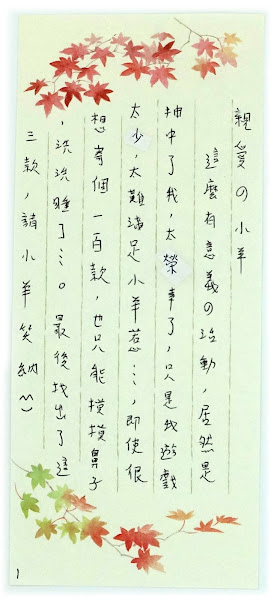 親愛の小羊
這麼有意義の活動，居然是
抽中了我，太榮幸了，只是我遊戲
太少，太難滿足小羊惹…，即使很
想寄個一百款，也只能摸摸鼻子
，洗洗睡了…。最後找出了這
三款，請小羊笑納^^)
1